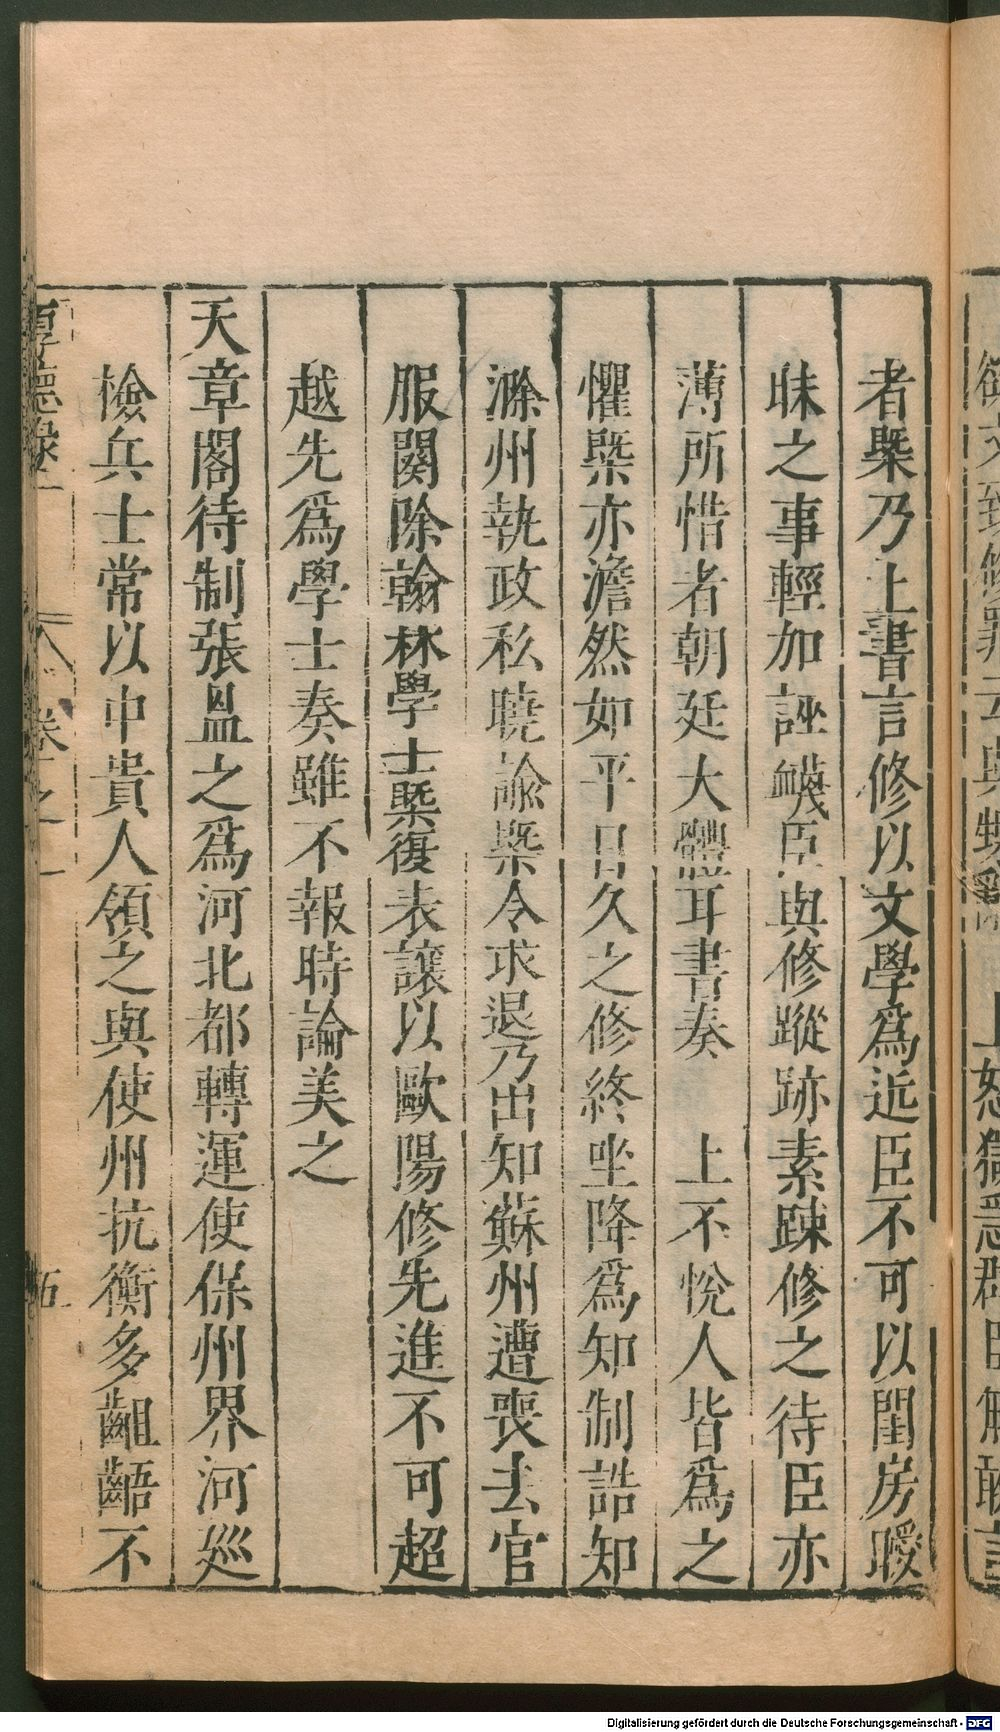 者槩乃上書言修以文學爲近臣不可以閨房曖
昧之事輕加誣衊臣與修蹤跡素踈修之待臣亦
薄所惜者朝廷大體耳書奏　上不悅人皆爲之
懼槩亦澹然如平日久之修終坐降爲知制誥知
滁州執政私曉諭槩令求退乃出知蘇州遭喪去官
服闋除翰林學士槩復表讓以歐陽修先進不可超
越先爲學士奏雖不報時論美之
天章閣待制張昷之爲河北都轉運使保州界河巡
檢兵士常以中貴人領之與使州抗衡多齟齬不
厚德錄　卷之一　五
Digitalisierung gefördert durch die Deutsche Forschungsgemeinschaft - DFG